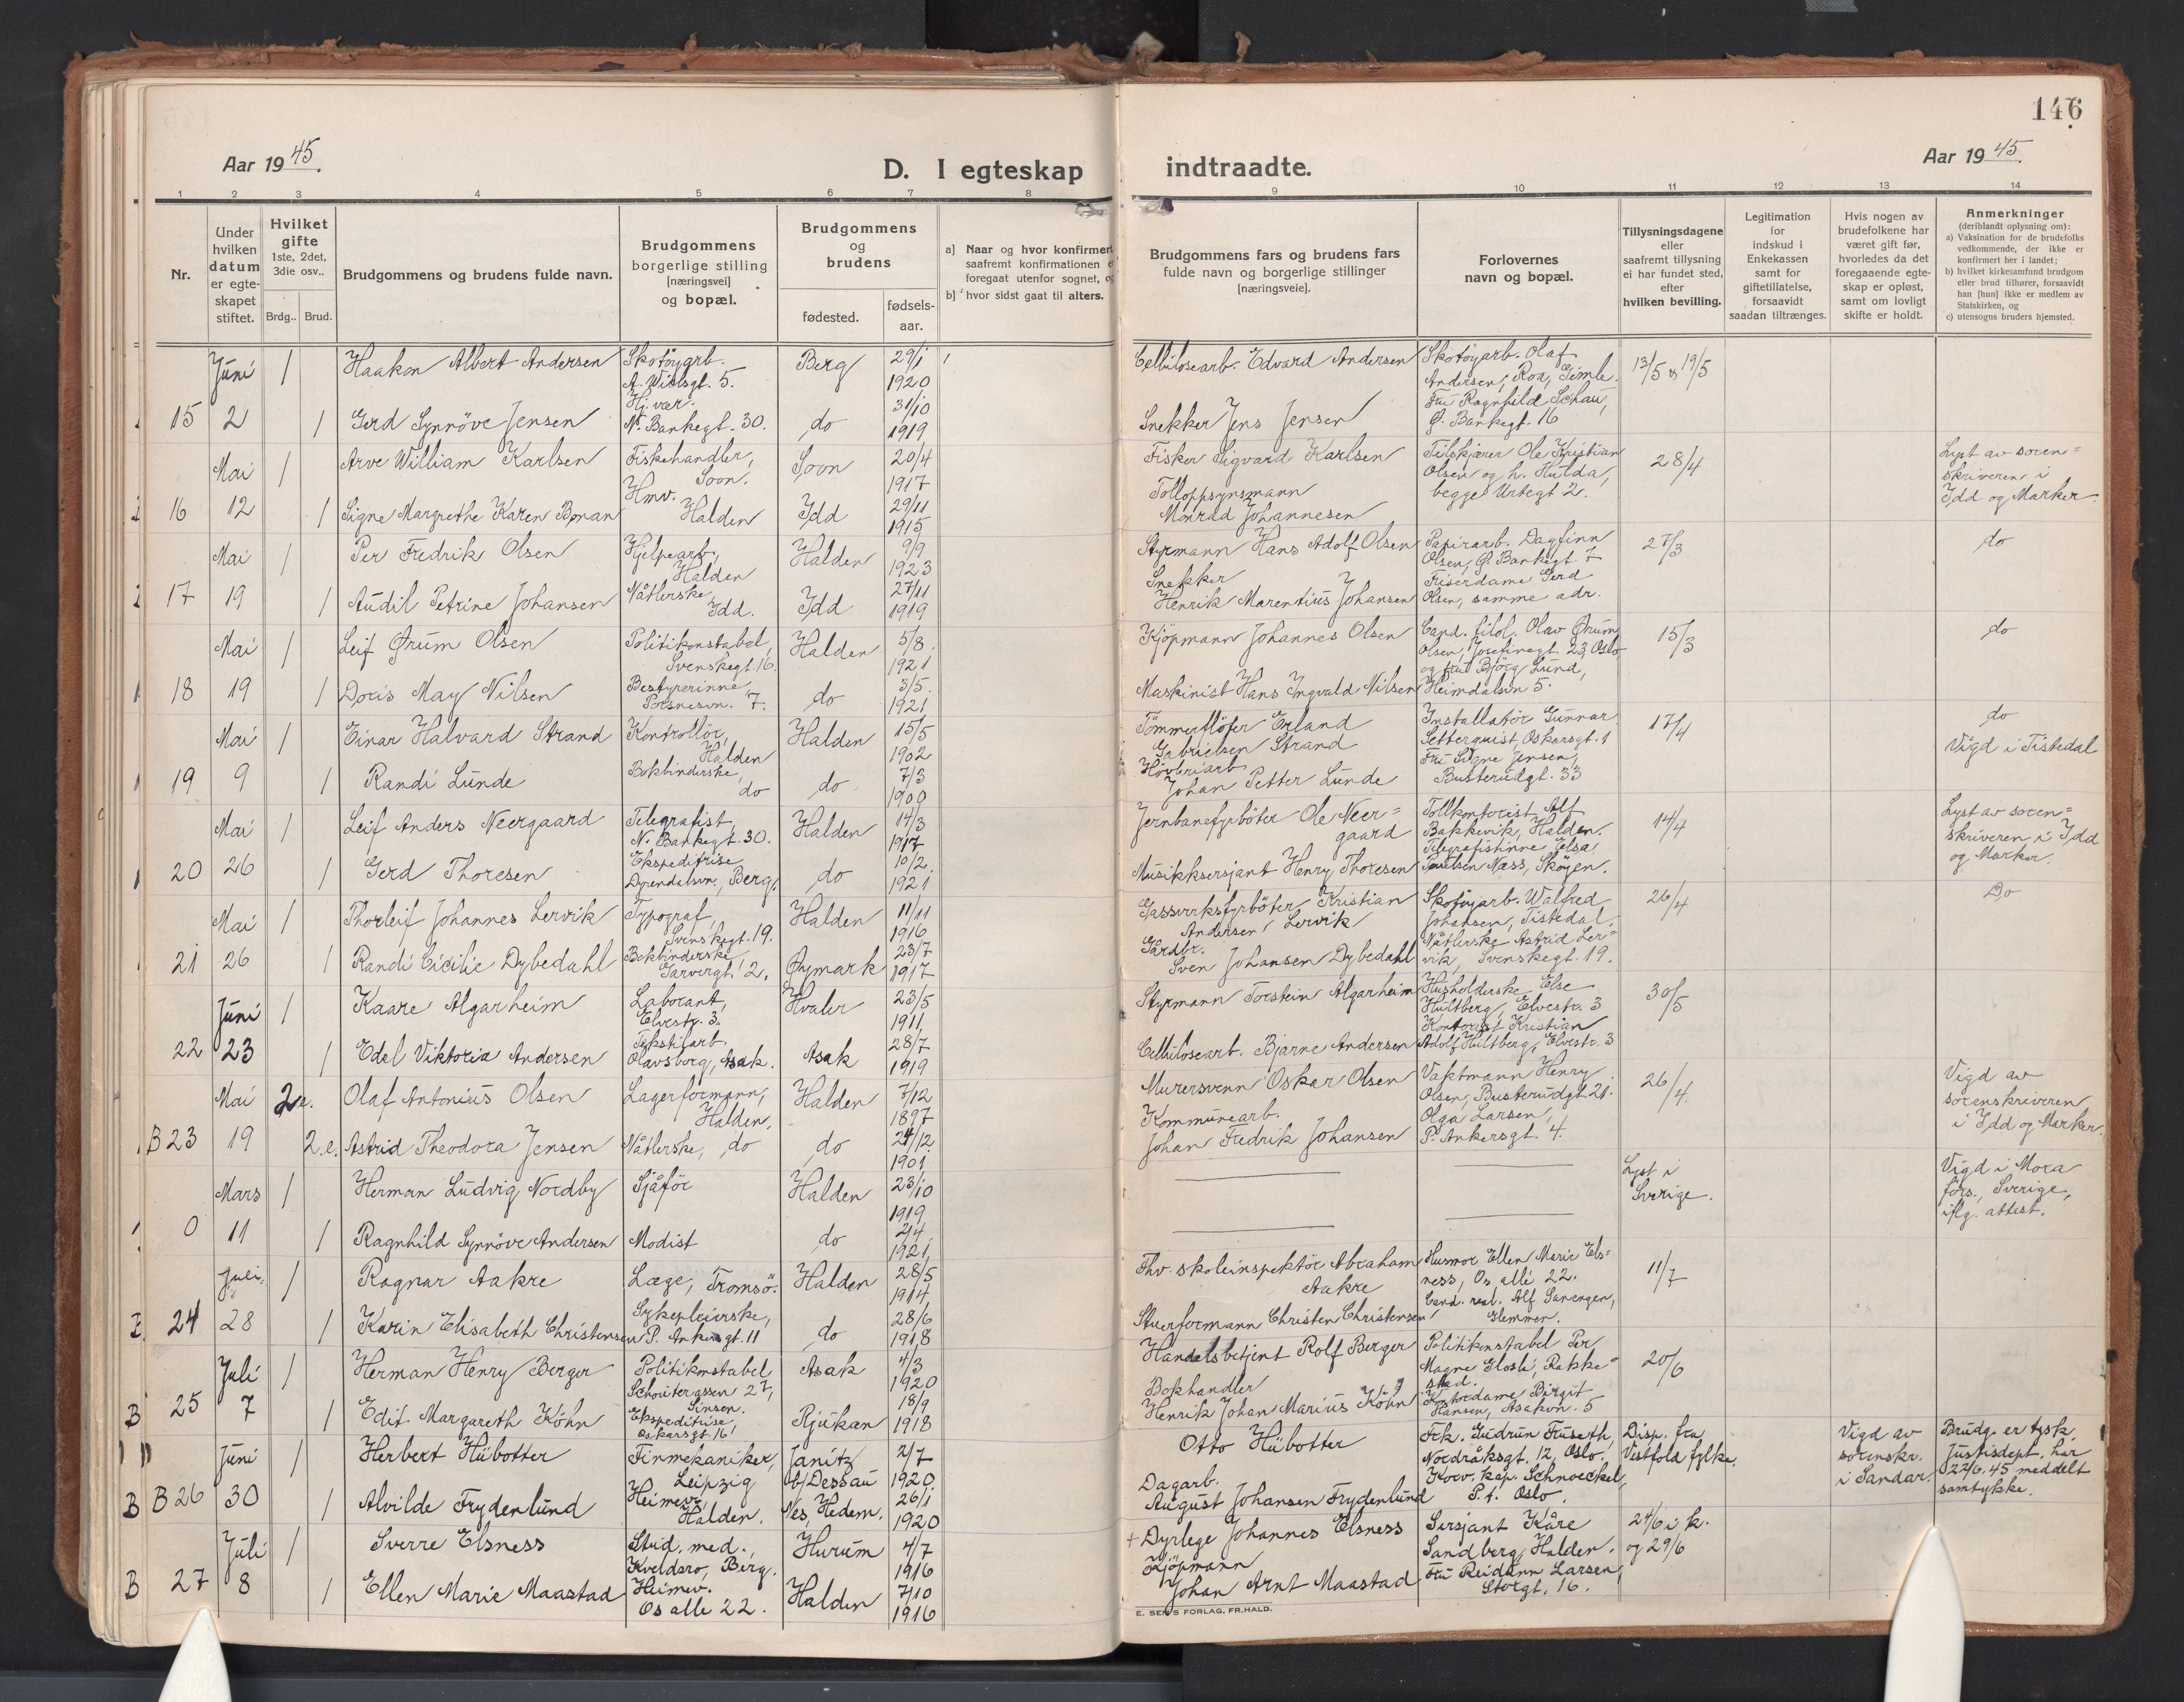 146
Aar 1945.
D. I egteskap indtraadte.
Aar 1945.
1 2 3 4 5 6 7 8 9 10 11 12 13 14
Nr.
Under
hvilken
datum
er egte-
skapet
stiftet.
Hvilket
gifte
1ste, 2det,
3die osv..
Brdg.. Brud.
Brudgommens og brudens fulde navn.
Brudgommens
borgerlige stilling
[næringsvei]
og bopæl.
Brudgommens
og
brudens
fødested.
fødsels-
aar.
a] Naar og hvor konfirmert
saafremt konfirmationen
foregaat utenfor sognet,
b] hvor sidst gaat til alters.
Brudgommens fars og brudens fars
fulde navn og borgerlige stillinger
[næringsveie].
Forlovernes
navn og bopæl.
Tillysningsdagene
eller
saafremt tillysning
ei har fundet sted,
efter
hvilken bevilling.
Legitimation
for
indskud i
Enkekassen
samt for
giftetillatelse,
forsaavidt
saadan tiltrænges.
Hvis nogen av
brudefolkene har
været gift før,
hvorledes da det
foregaaende egte-
skap er opløst,
samt om lovligt
skifte er holdt.
Anmerkninger
(deriblandt oplysning om):
a) Vaksination for de brudefolks
vedkommende, der ikke er
konfirmert her i landet;
b) hvilket kirkesamfund brudgom
eller brud tilhører, forsaavidt
han [hun] ikke er medlem av
Statskirken, og
c) utensogns bruders hjemsted.
15 Juni 2
1 Haakon Albert Andersen
Skotøyarb.
A. Wielsgt. 5.
Berg 29/1 1920
Celulosearb. Edvard Andersen
Skotøyarb. Olaf
Andersen, Roa, Gimle.
13/5 & 19/5
1 Gerd Synnöve Jensen
Hj. vær.
N. Bankegt. 30.
do 31/10 1919
Snekker Jens Jensen
Fru Ragnhild Schau,
Ø. Bankegt. 16
16 Mai 12
1 Arve William Karlsen
Fiskehandler,
Soon.
Soon 20/4 1917
Fisker Sigvard Karlsen
Tilskjærer Ole Kristian
Olsen og h. Hulda,
begge Urtegt 2.
28/4
Lyst av soren=
skriveren i
Idd og Marker.
1 Signe Margrethe Karen Bonan
Hmv.
Halden
Idd 29/11 1915
Tolloppsynsmann
Monrad Johannesen
17 Mai 19
1 Per Fredrik Olsen
Hjelpearb,
Halden
Halden 9/9 1923
Styrmann Hans Adolf Olsen
Papirarb. Dagfinn
Olsen, Ø. Bankegt. 7
27/3
do
1 Audil Petrine Johansen
Nåtlerske,
Idd.
Idd 27/11 1919
Snekker
Henrik Marentius Johansen
Friserdame Gerd
Olsen, samme adr.
18 Mai 19
1 Leif Ørum Olsen
Politikonstabel,
Svenskegt. 16.
Halden 5/8. 1921
Kjöpmann Johannes Olsen
Cand. filol. Olav Ørum
Olsen, Josefinegt 23, Oslo,
15/3
do
1 Doris May Nilsen
Bestyrerinne
7.
do 3/5. 1921
Maskinist Hans Ingvald Nilsen
og fru Björg Lund,
Heimdalsvn 5.
19 Mai 9
1 Einar Halvard Strand
Kontrollör,
Halden
Halden 15/5 1902
Tömmerfløter Erland
Gabrielsen Strand
Installatör Gunnar
Setterquist, Oskarsgt. 1
17/4
do
Vigd i Tistedal
1 Randi Lunde
Bokbinderske,
do
do 7/3 1900
Høvleriarb
Johan Petter Lunde
Fru Signe Jensen,
Busterudgt. 33
20 Mai 26
1 Leif Anders Neergaard
Telegrafist
N. Bankegt. 30.
Halden 14/3 1917
Jernbanefyrböter Ole Neer=
gaard
Tollkontorist Alf
Bakkevik, Halden.
14/4
Lyst av soren=
skriveren i Idd
og Marker.
1 Gerd Thoresen
Ekspeditrise
Dyrendalsvn., Berg.
do 10/2. 1921
Musikksersjant Henry Thoresen
Telegrafistinne Elsa
Poulsen Næss, Skøyen.
21 Mai 26
1 Thorleif Johannes Lervik
Typograf,
Svenskegt. 19.
Halden 11/11 1916
Gassverksfyrböter Kristian
Andersen Lervik
Skotøyarb. Walfred
Johansen, Tistedal.
26/4
Do
1 Randi Cicilie Dybedahl
Bokbinderske
Garvergt. 2.
Øymark 23/7 1917
Gårdbr.
Sven Johansen Dybedahl
Nåtlerske Astrid Ler=
vik, Svenskegt. 19.
22 Juni 23
1 Kaare Algarheim
Laborant,
Elvestr. 3.
Hvaler 23/5 1911
Styrmann Torstein Algarheim
Husholderske Else
Hultberg, Elvestr. 3
30/5
1 Edel Viktoria Andersen
Tekstilarb.
Olavsborg, Asak.
Asak 28/7 1919
Cellulosearb. Bjarne Andersen
Kontorist Kristian
Adolf Hultberg, Elvestr. 3
B 23 Mai 19
2 e. Olaf Antonius Olsen
Lagerformann,
Halden.
Halden 7/12 1897
Murersvenn Oskar Olsen
Vaktmann Henry
Olsen, Busterudgt 21.
26/4.
Vigd av
sorenskriveren
i Idd og Marker.
2.e. Astrid Theodora Jensen
Nåtlerske, do
do 24/12. 1901
Kommunearb.
Johan Fredrik Johansen
Olga Larsen,
P. Ankersgt. 4.
0 Mars 11
1 Herman Ludvig Nordby
Sjåför
Halden 23/10 1919
Lyst i
Sverige.
Vigd i Mora
förs., Sverige,
iflg. attest.
1 Ragnhild Synnöve Andersen
Modist
do 2/4 1921
24 Juli 28
1 Ragnar Aakre
Læge, Tromsö.
Halden 28/5 1914
Fhv. skoleinspektör Abraham
Aakre
Husmor Ellen Marie Els=
ness, Os allé 22.
11/7
1 Karin Elisabeth Christensen
Sykepleierske,
P. Ankersgt. 11
do 28/6 1918
Stuerformann Christen Christensen
Cand. real. Alf Sanengen,
Glemmen.
B 25 Juli 7
1 Herman Henry Berger
Politikonstabel
Schouterassen 27,
Sinsen.
Asak 4/3 1920
Handelsbetjent Rolf Berger
Politikonstabel Per
Magne Glosli, Rakke=
stad.
20/6
1 Edit Margareth Köhn
Ekspeditrise,
Oskarsgt. 16
Rjukan 18/9 1918
Bokhandler
Henrik Johan Marius Köhn
Kontordame Birgit
Hansen, Asakvn. 5
B B 26 Juni 30
1 Herbert Hübotter
Finmekaniker,
Leipzig
Janitz
b/Dessau 2/7 1920
Otto Hübotter
Frk. Gudrun Fuseth
Nordråksgt. 12, Oslo.
Disp. fra
Vestfold fylke.
Vigd av
sorenskr.
i Sandar.
Brudg. er tysk.
Justisdept. har
22/6. 45 meddelt
samtykke.
1 Alvilde Frydenlund
Heimev.
Halden.
Nes, Hedem. 26/1 1920
Dagarb.
August Johansen Frydenlund
Korv. kap. Schnoeckel,
P.t. Oslo.
B 27 Juli 8
1 Sverre Elsness
Stud. med.,
Kveldsro, Berg.
Hurum 4/7 1916
+ Dyrlege Johannes Elsness
Sersjant Kåre
Sandberg, Halden.
24/6 i k.
og 29/6
1 Ellen Marie Maastad
Heimev.
Os alle 22.
Halden 7/10 1916
Kjöpmann
Johan Arnt Maastad
Fru Reidunn Larsen,
Storgt. 16.
E. SEM'S FORLAG, FR.HALD.